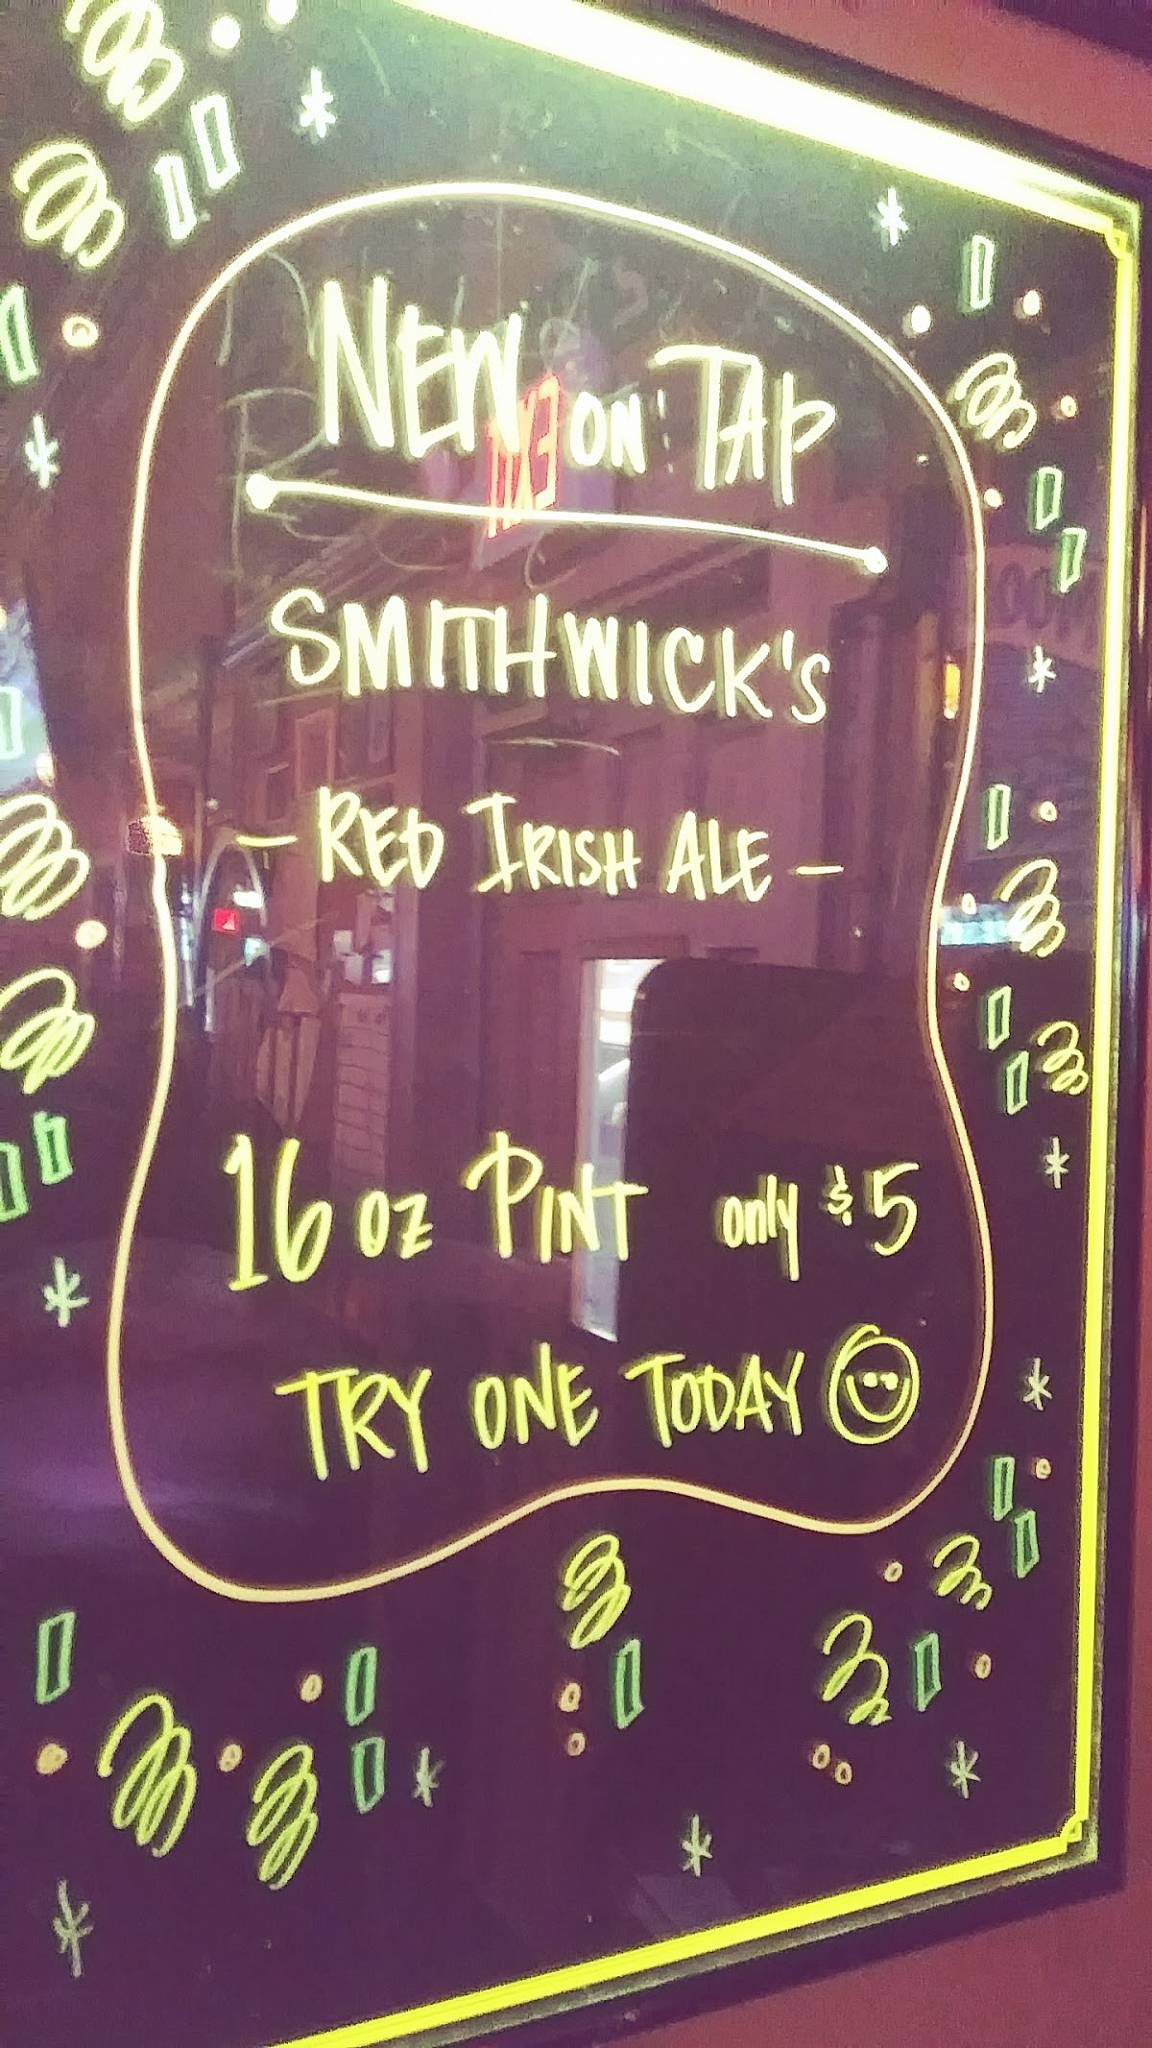 NEW ON TAP
SMITHWICK'S
- RED IRISH ALE -
16 oz PINT only $5
TRY ONE TODAY
EXIT